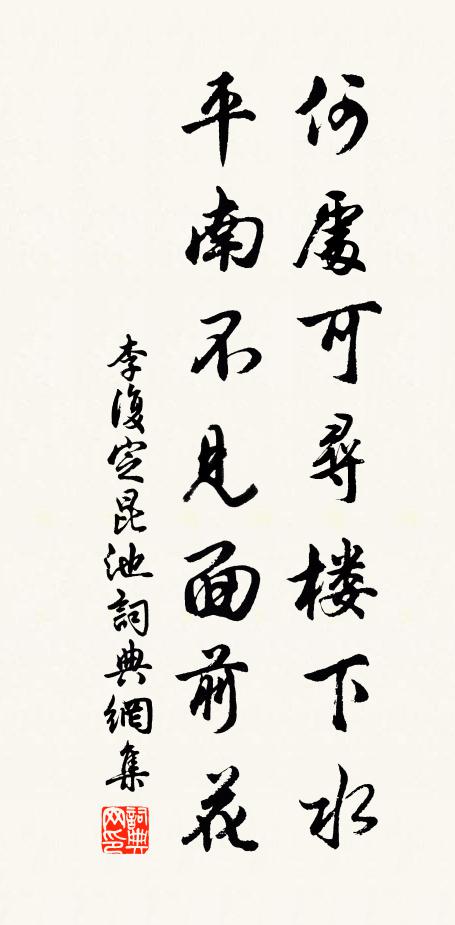 何處可尋楼下水
平南不見面前花
李復定昆池詞典網集
詞典网印